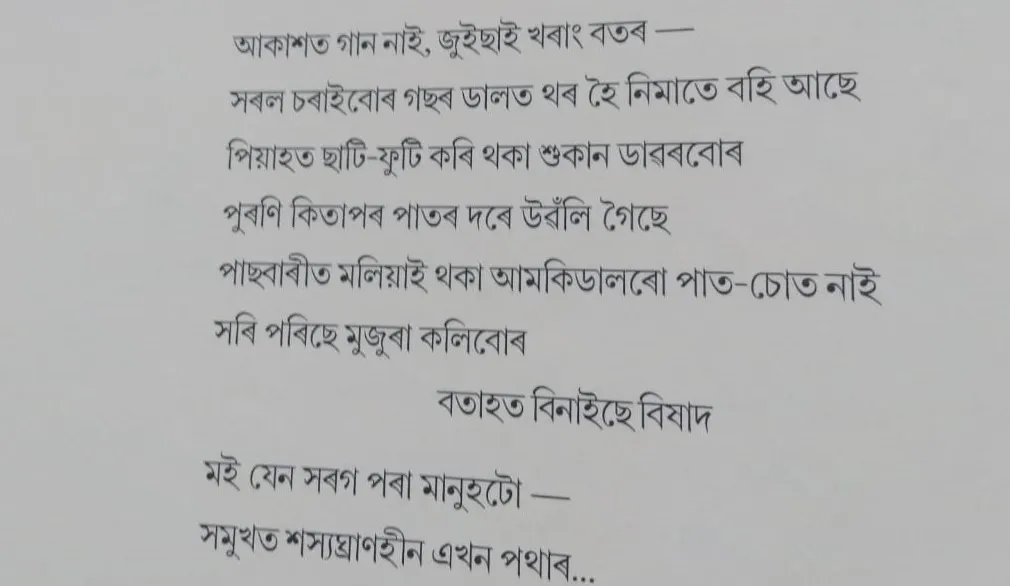 আকাশত গান নাই, জুইছাই খৰাং বতৰ —
সৰল চৰাইবোৰ গছৰ ডালত থৰ হৈ নিমাতে বহি আছে
পিয়াহত ছাটি-ফুটি কৰি থকা শুকান ডাৱৰবোৰ
পুৰণি কিতাপৰ পাতৰ দৰে উৱঁলি গৈছে
পাছবাৰীত মলিয়াই থকা আমকিডালৰো পাত-চোত নাই
সৰি পৰিছে মুজুৰা কলিবোৰ
বতাহত বিনাইছে বিষাদ
মই যেন সৰগ পৰা মানুহটো —
সমুখত শস্যঘ্ৰাণহীন এখন পথাৰ...